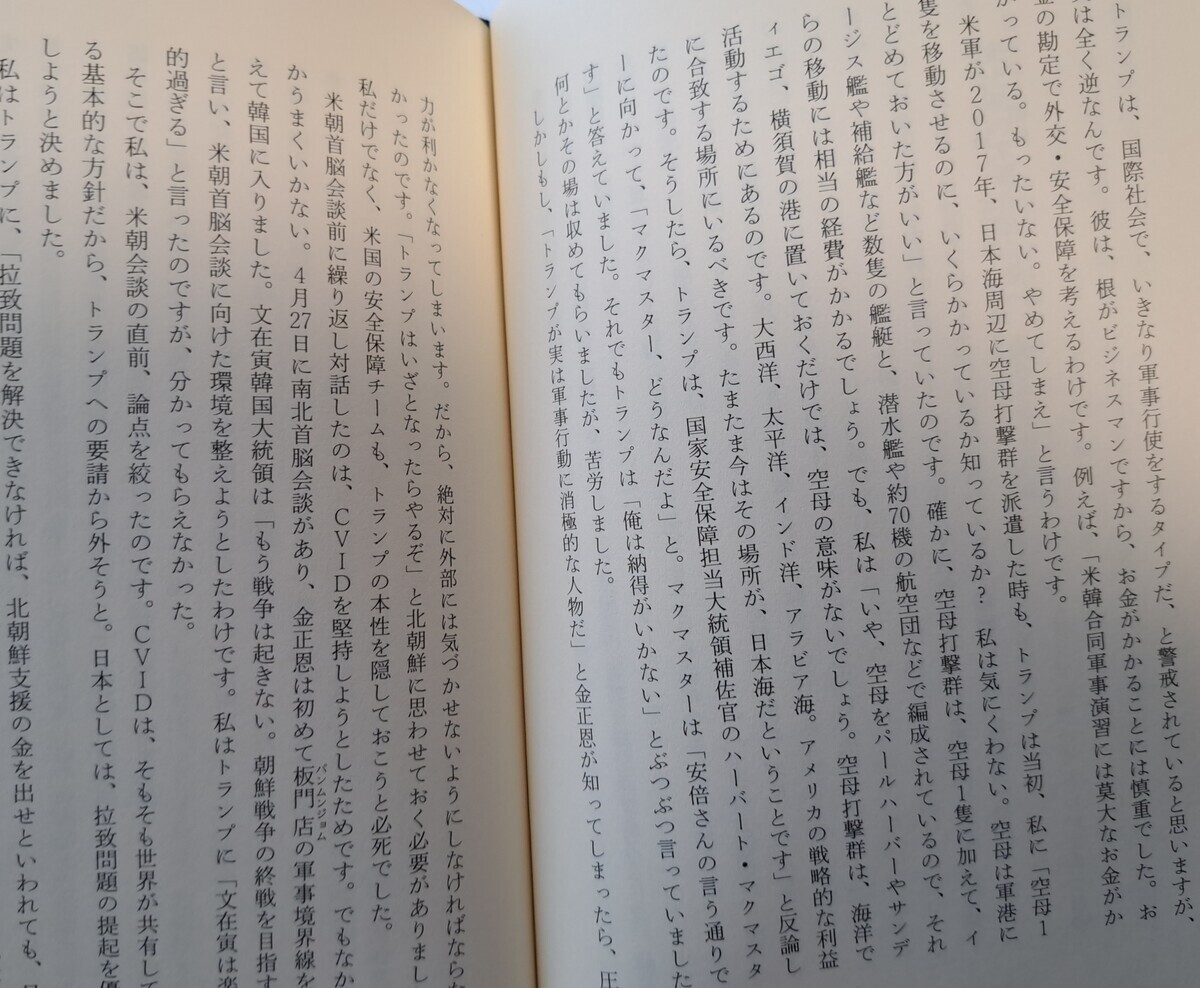 トランプは、国際社会で、いきなり軍事行使をするタイプだ、と警戒されていると思いますが、
は全く逆なんです。彼は、根がビジネスマンですから、お金がかかることには慎重でした。お
の勘定で外交・安全保障を考えるわけです。例えば、「米韓合同軍事演習には莫大なお金がか
かっている。もったいない。やめてしまえ」と言うわけです。
米軍が2017年、日本海周辺に空母打撃群を派遣した時も、トランプは当初、私に「空母1
隻を移動させるのに、いくらかかっているか知っているか? 私は気にくわない。空母は軍港に
とどめておいた方がいい」と言っていたのです。確かに、空母打撃群は、空母1隻に加えて、イ
ージス艦や補給艦など数隻の艦艇と、潜水艦や約70機の航空団などで編成されているので、それ
らの移動には相当の経費がかかるでしょう。でも、私は「いや、空母をパールハーバーやサンデ
ィエゴ、横須賀の港に置いておくだけでは、空母の意味がないでしょう。空母打撃群は、海洋で
活動するためにあるのです。大西洋、太平洋、インド洋、アラビア海。アメリカの戦略的な利益
に合致する場所にいるべきです。たまたま今はその場所が、日本海だということです」と反論し
たのです。そうしたら、トランプは、国家安全保障担当大統領補佐官のハーバート・マクマスタ
ーに向かって、「マクマスター、どうなんだよ」と。マクマスターは「安倍さんの言う通りで
す」と答えていました。それでもトランプは「俺は納得がいかない」とぶつぶつ言っていました
何とかその場は収めてもらいましたが、苦労しました。
しかしもし、「トランプが実は軍事行動に消極的な人物だ」と金正恩が知ってしまったら、圧
力が利かなくなってしまいます。だから、絶対に外部には気づかせないようにしなければならな
かったのです。「トランプはいざとなったらやるぞ」と北朝鮮に思わせておく必要がありまし
私だけでなく、米国の安全保障チームも、トランプの本性を隠しておこうと必死でした。
米朝首脳会談前に繰り返し対話したのは、CVIDを堅持しようとしたためです。でもなか
かうまくいかない。4月27日に南北首脳会談があり、金正恩は初めて板門店の軍事境界線を
パンムンジョム
えて韓国に入りました。文在寅韓国大統領は「もう戦争は起きない。朝鮮戦争の終戦を目指す
と言い、米朝首脳会談に向けた環境を整えようとしたわけです。私はトランプに「文在寅は楽
的過ぎる」と言ったのですが、分かってもらえなかった。
そこで私は、米朝会談の直前、論点を絞ったのです。CVIDは、そもそも世界が共有して
る基本的な方針だから、トランプへの要請から外そうと。日本としては、拉致問題の提起を優
しようと決めました。
私はトランプに、「拉致問題を解決できなければ、北朝鮮支援の金を出せといわれても、